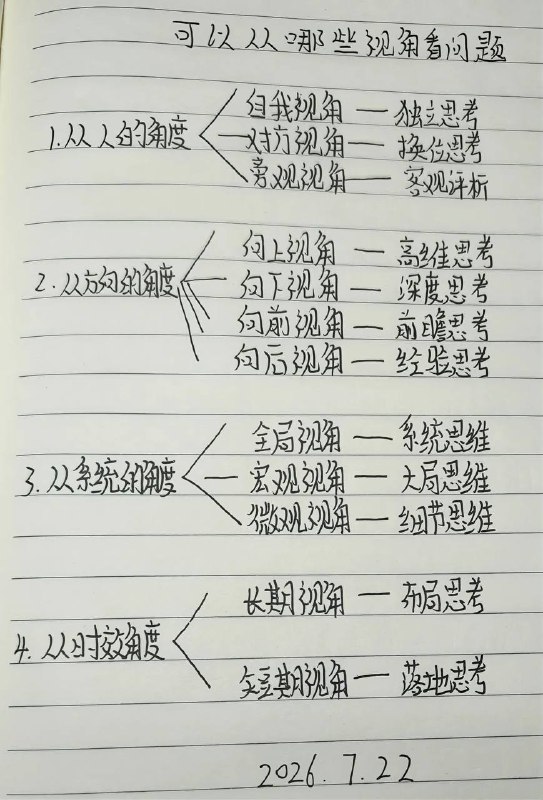 可以从哪些视角看问题
自我视角 — 独立思考
1.从人的角度 对方视角 — 换位思考
旁观视角 — 客观评析
向上视角 — 高维思考
2.从方向的角度 向下视角 — 深度思考
向前视角 — 前瞻思考
向后视角 — 经验思考
全局视角 — 系统思维
3.从系统的角度 宏观视角 — 大局思维
微观视角 — 细节思维
长期视角 — 布局思考
4.从时效角度
短期视角 — 落地思考
2026.7.22